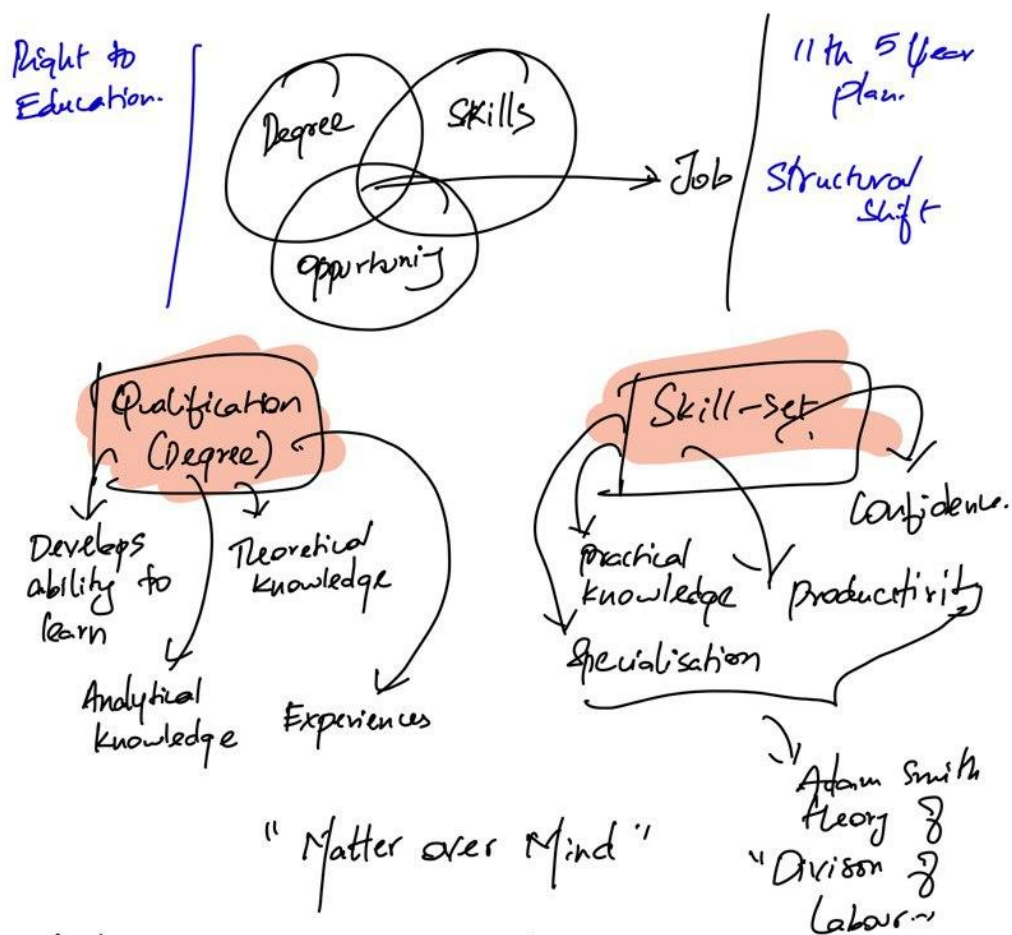 Right to
Education.
Degree
Skills
Oppurtunity
Job
11th 5 Year
plan.
Structural
Shift
Qualification
(Degree)
Develops
ability to
learn
Theoretical
knowledge
Analytical
knowledge
Experiences
Skill-set
Confidence.
Practical
knowledge
Productivity
Specialisation
"Matter over Mind"
Adam Smith
theory of
"Divison of
Labour"